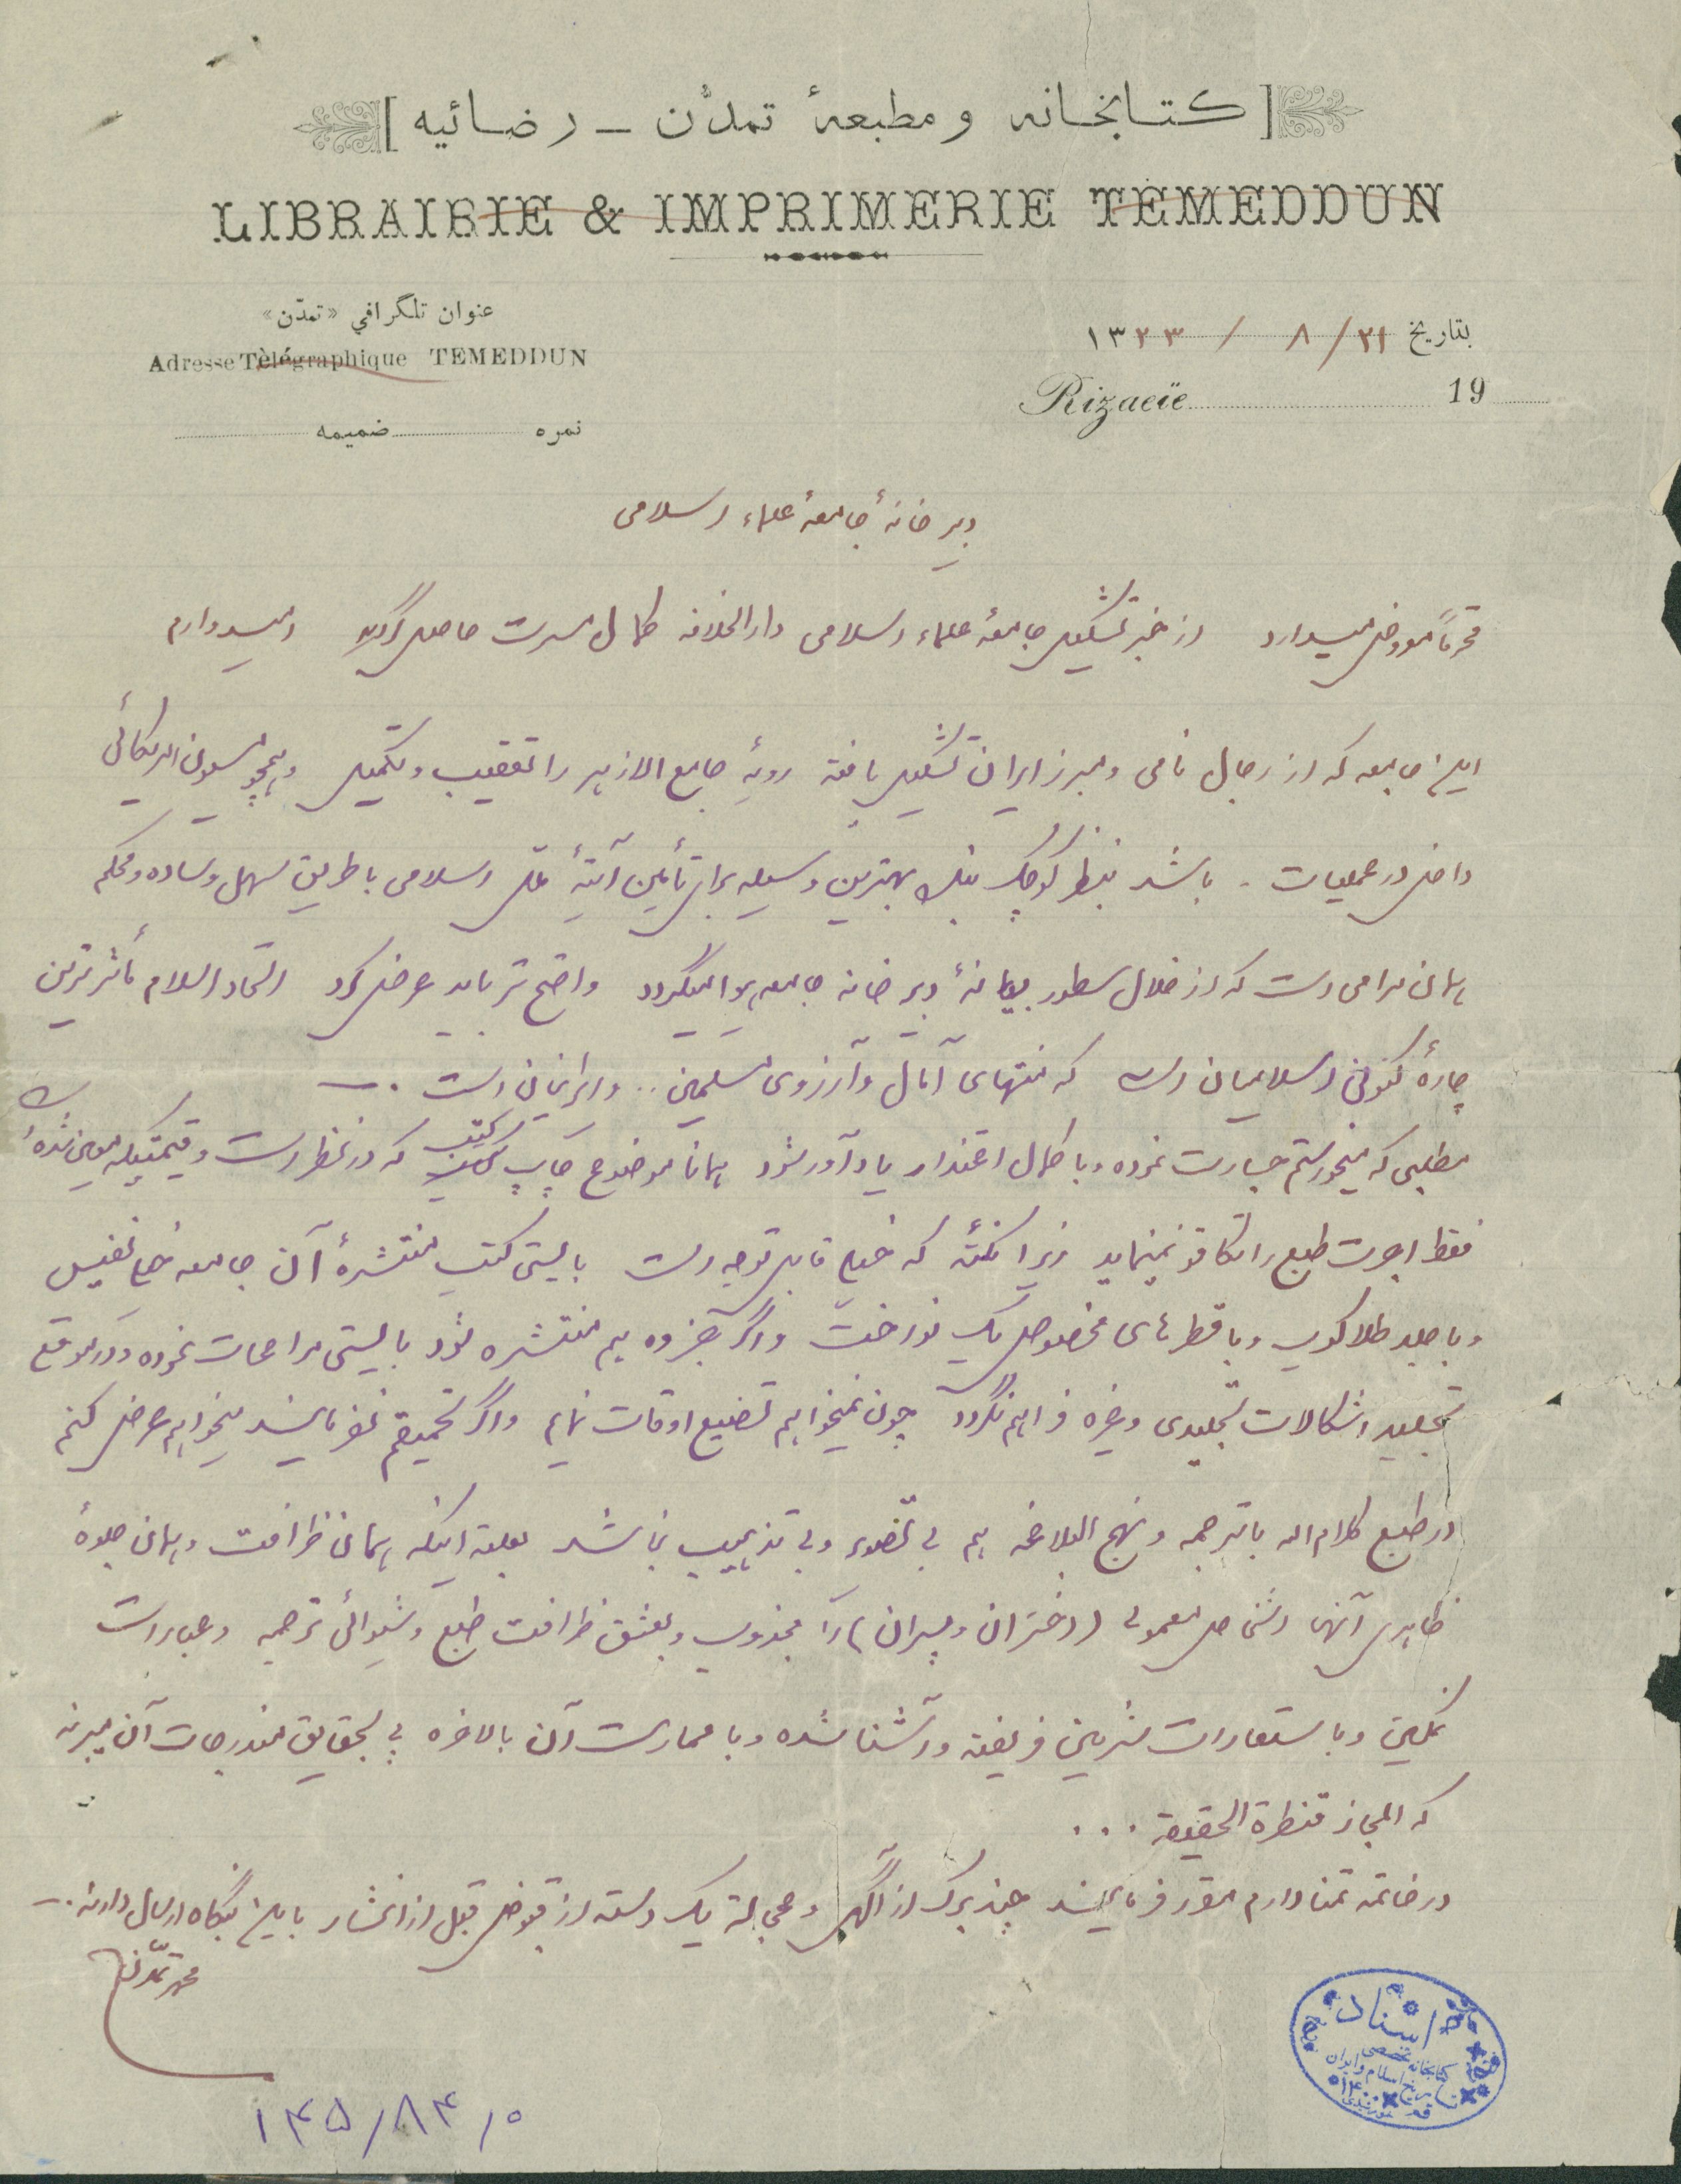 [ کتابخانه و مطبعهٔ تمدّن ـ رضائیه ]
LIBRAIRIE & IMPRIMERIE TEMEDDUN
عنوان تلگرافي «تمدّن»
Adresse Tèlégraphique TEMEDDUN
بتاریخ ۲۱/ ۸ / ۱۳۲۳
Rizaeïe 19
نمره ضمیمه
دبیرخانهٔ جامعهٔ علماء اسلامی
محترماً معروض میدارد از خبر تشکیل جامعهٔ علماء اسلامی دارالخلافه کمال مسرت حاصل گردید امیدوارم
این جامعه که از رجال نامی و مبرز ایران تشکیل یافته رویهٔ جامع الازهر را تعقیب و تکمیل و همچو مسیون امریکائی
داخل در عملیات . باشد بنظر کوچک بنده بهترین وسیله برای تأمین آتیهٔ ملل اسلامی با طریق سهل و ساده و محکم
همان مرامی است که از خلال سطور بیانهٔ دبیرخانه جامعه هویدا میگردد واضح تر باید عرض کرد اتحاد اسلام مأثرترین
چارهٔ کنونی اسلامیان است که منتهای آمال و آرزوی مسلمین .. و ایرانیان است .
مطلبی که میخواستم جسارت نموده و با کمال اعتذار یادآور شود همانا موضوع چاپ کتب که در نظر است و قیمتیکه معین شده
فقط اجرت طبع را تکافو نمینماید زیرا نکته که خیلی قابل توجه است بایستی کتب منتشرهٔ آن جامعه خیلی نفیس
و با جلد طلاکوب و با قطرهای مخصوص یک نواخت و اگر جزوه هم منتشره شود بایستی مراعات نموده و در موقع
تجلید اشکالات تجلیدی و غیره فراهم نگردد چون نمیخواهم تضییع اوقات نمایم و اگر تحمیقم نفرمایند میخواهم عرض کنم
در طبع کلام اله با ترجمه و نهج البلاغه هم بی تصویر و بی تذهیب نباشد بعلت اینکه همان ظرافت و همان جلوهٔ
ظاهری آنها اشخاص معمولی (دختران و پسران) را مجذوب و بعشق ظرافت طبع و شیوائی ترجمه و عبارات
نمکین و باستعارات شیرین فریفته و آشنا شده و با ممارست آن بالاخره پی بحقایق مندرجات آن میبرند
که المجاز قنطرة الحقیقه . . .
در خاتمه تمنا دارم مقرر فرمایند چند برگ از آگهی و عجالة یک دسته از قبوض قبل از انتشار باین بنگاه ارسال دارند .
محمد تمدن
اسناد
کتابخانه تخصصی
تاریخ اسلام و ایران
۱۴۵/۸۴/۰